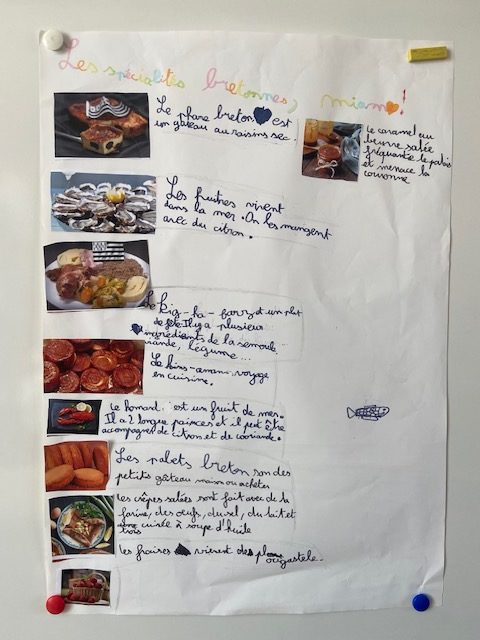 Les spécialités bretonnes, miam!
Le phare breton est
un gâteau au raisins sec.
le caramel au
beurre salée
fréquante le palais
et menace la
couronne
Les huitres vivent
dans la mer. On les mangent
avec du citron.
Le kig-ha-farz est un plat
de fête. Il y a plusieur
ingrédients de la semoule
viande, légume...
Le kins-amann voyage
en cuisine.
Le homard est un fruit de mer.
Il a 2 longue painces et il peut être
accompagner de citron et de cooriande.
Les palets breton son des
petits gâteau maison ou acheter
les crêpes salées sont fait avec de la
farine, des œufs, du sel, du lait et
trois cuiée à soupe d'huile
les fraises vienent de plougastele.